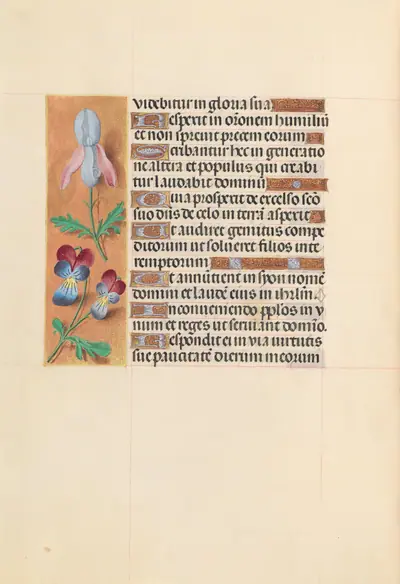 videbitur in gloria sua
Respexit in orõnem humiliũ
et non sprevit precem eorum
Scribantur hec in generatio
ne altera et populus qui creabi
tur laudabit dominũ
Quia prospexit de excelso scõ
suo dñs de celo in terrã aspexit
Ut audiret gemitus compe
ditorum ut solueret filios inte
remptorum
Ut annũtient in syon nomẽ
domini et laudẽ eius in ihrlm̃
In conveniendo pplos in v
num et reges ut serviant domĩo.
Respondit ei in via virtutis
sue paucitatẽ dierum meorum